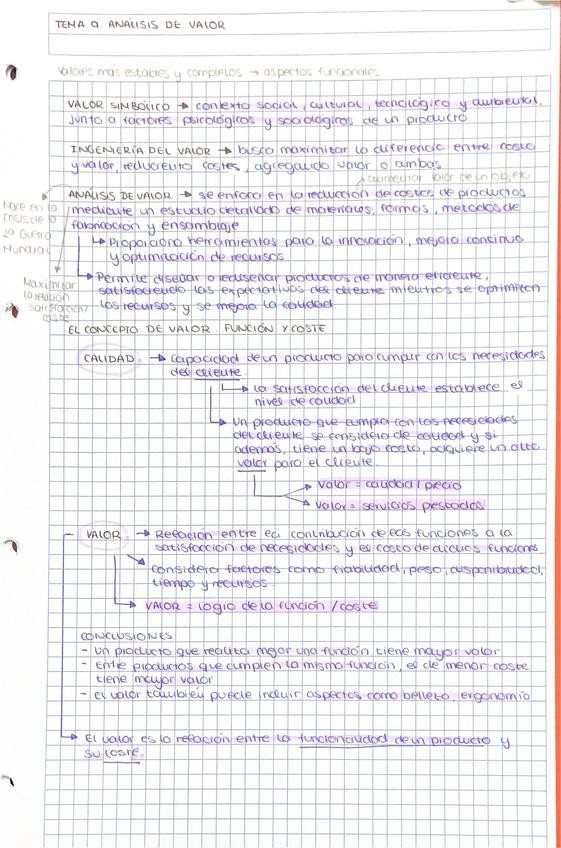 TEMA 9. ANÁLISIS DE VALOR
Valores más estables y completos → aspectos funcionales
VALOR SIMBÓLICO → contexto social, cultural, tecnológico y ambiental,
junto a factores psicológicos y sociológicos de un producto
INGENIERÍA DEL VALOR → busca maximizar la diferencia entre costo
y valor, reduciendo costes, agregando valor o ambos
aumentar valor de un objeto
ANÁLISIS DE VALOR → se enfoca en la reducción de costos de productos
mediante un estudio detallado de materiales, formas, métodos de
fabricación y ensamblaje
Nace en la
crisis de la
2º Guerra
Mundial
↳ Proporciona herramientas para la innovación, mejora continua
y optimización de recursos
↳ Permite diseñar o rediseñar productos de manera eficiente,
satisfaciendo las expectativas del cliente mientras se optimizan
los recursos y se mejora la calidad
Maximizar
la relación
satisfacción/
coste
EL CONCEPTO DE VALOR. FUNCIÓN Y COSTE
CALIDAD → Capacidad de un producto para cumplir con las necesidades
del cliente
↳ la satisfacción del cliente establece el
nivel de calidad
↳ Un producto que cumpla con las necesidades
del cliente se considera de calidad y si
además, tiene un bajo costo, adquiere un alto
valor para el cliente.
→ valor = calidad / precio
→ valor = servicios prestados
VALOR → Relación entre la contribución de las funciones a la
satisfacción de necesidades y el costo de dichas funciones
→ considera factores como fiabilidad, peso, disponibilidad,
tiempo y recursos
↳ VALOR = logro de la función / coste
CONCLUSIONES
- Un producto que realiza mejor una función tiene mayor valor
- Entre productos que cumplen la misma función, el de menor coste
tiene mayor valor
- El valor también puede incluir aspectos como belleza, ergonomía
↳ El valor es la relación entre la funcionalidad de un producto y
su coste.